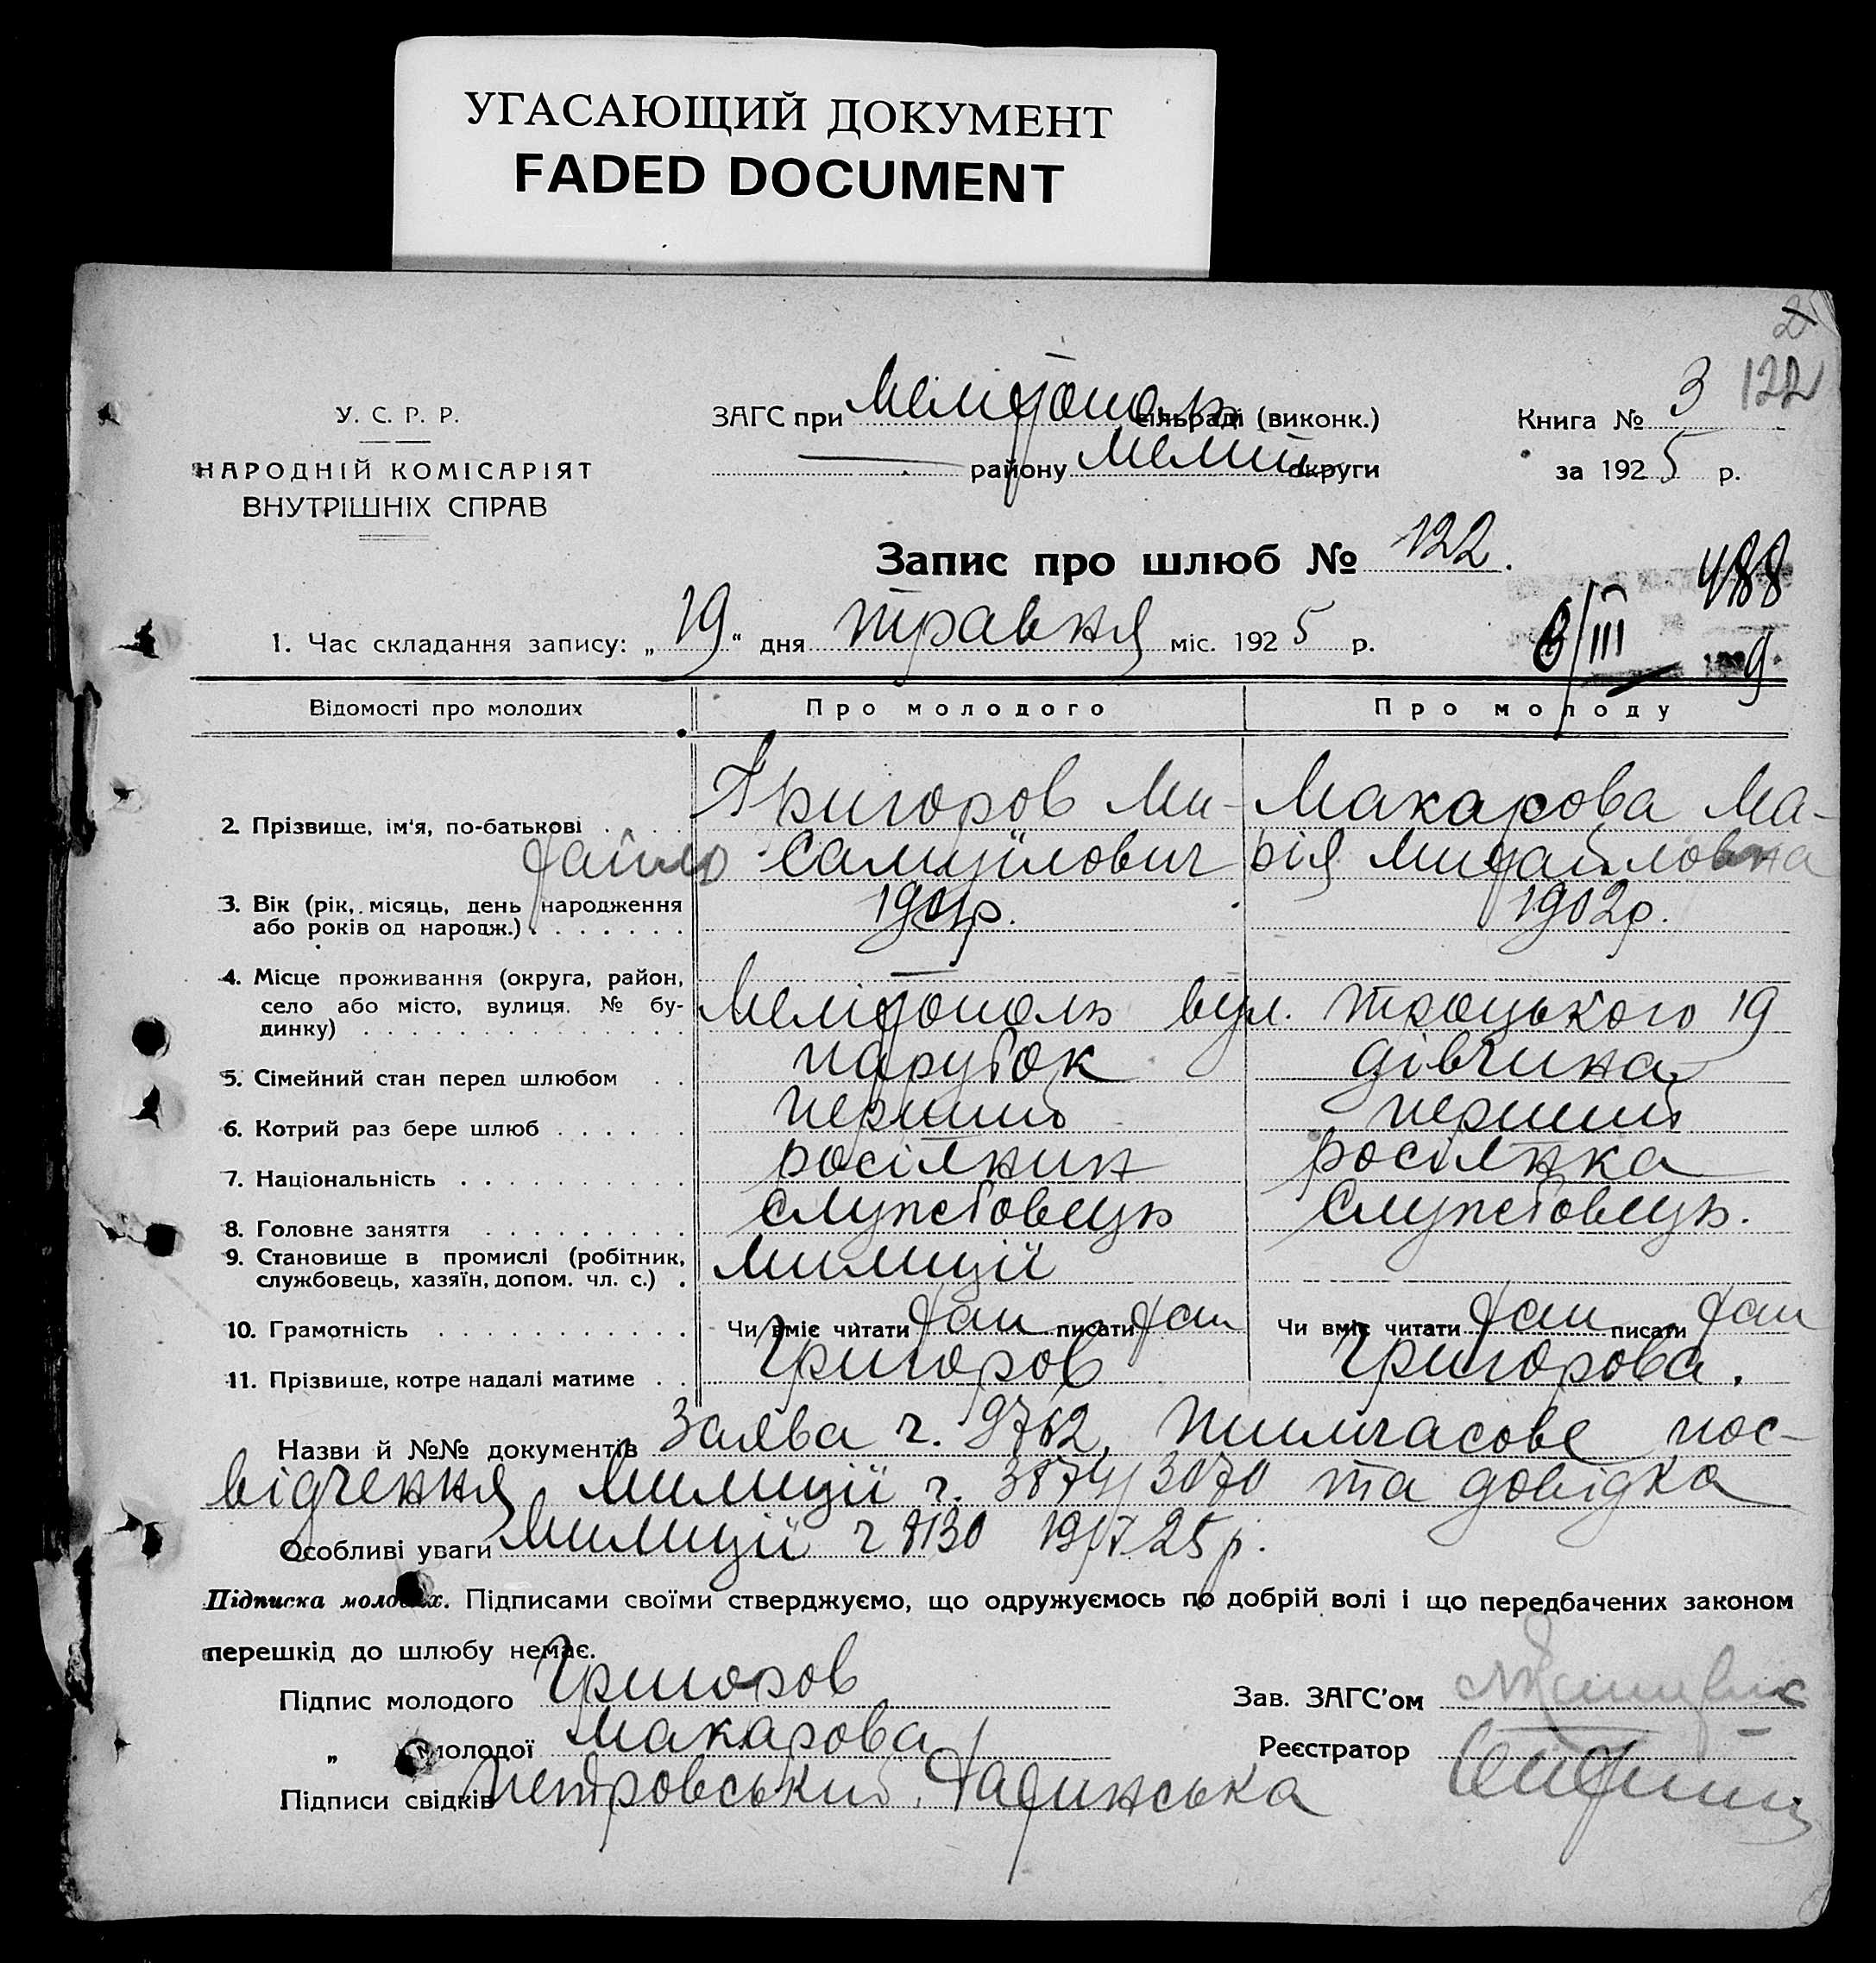 УГАСАЮЩИЙ ДОКУМЕНТ
FADED DOCUMENT
122
У. С. Р. Р.
НАРОДНІЙ КОМІСАРІЯТ
ВНУТРІШНІХ СПРАВ
ЗАГС при Меліт​ополь сільраді (виконк.)
— району Меліт округи
Книга № 3
за 1925 р.
Запис про шлюб № 122.
488
1. Час складання запису: „19“ дня травня міс. 1925 р.
6/III 9
Відомості про молодих Про молодого Про молоду
2. Прізвище, ім'я, по-батькові . . . Григоров Ми- Макарова Ма-
хайло Самуїлович рія Михайловна
3. Вік (рік, місяць, день народження 1901р. 1902р.
або років од народж.) . . . . . . .
4. Місце проживання (округа, район,
село або місто, вулиця. № бу- Мелітополь вул. Троцького 19
динку) . . . . . . . . . . . . . .
5. Сімейний стан перед шлюбом . . парубок дівчина
6. Котрий раз бере шлюб . . . . . . перший перший
7. Національність . . . . . . . . . . росіянин росіянка
8. Головне заняття . . . . . . . . . службовець службовець.
9. Становище в промислі (робітник, милиції
службовець, хазяїн, допом. чл. с.) .
10. Грамотність . . . . . . . . . . . Чи вміє читати так писати так Чи вміє читати так писати так
11. Прізвище, котре надалі матиме . . Григоров Григорова.
Назви й №№ документів Заява ч. 9762, тимчасове пос-
відчення милиції ч. 3874/3070 та довідка
Особливі уваги милиції ч 8130 19/V 25 р.
Підписка молодих. Підписами своїми стверджуємо, що одружуємось по добрій волі і що передбачених законом
перешкід до шлюбу немає.
Підпис молодого Григоров Зав. ЗАГС'ом
„ молодої Макарова Реєстратор
Підписи свідків Петровський,